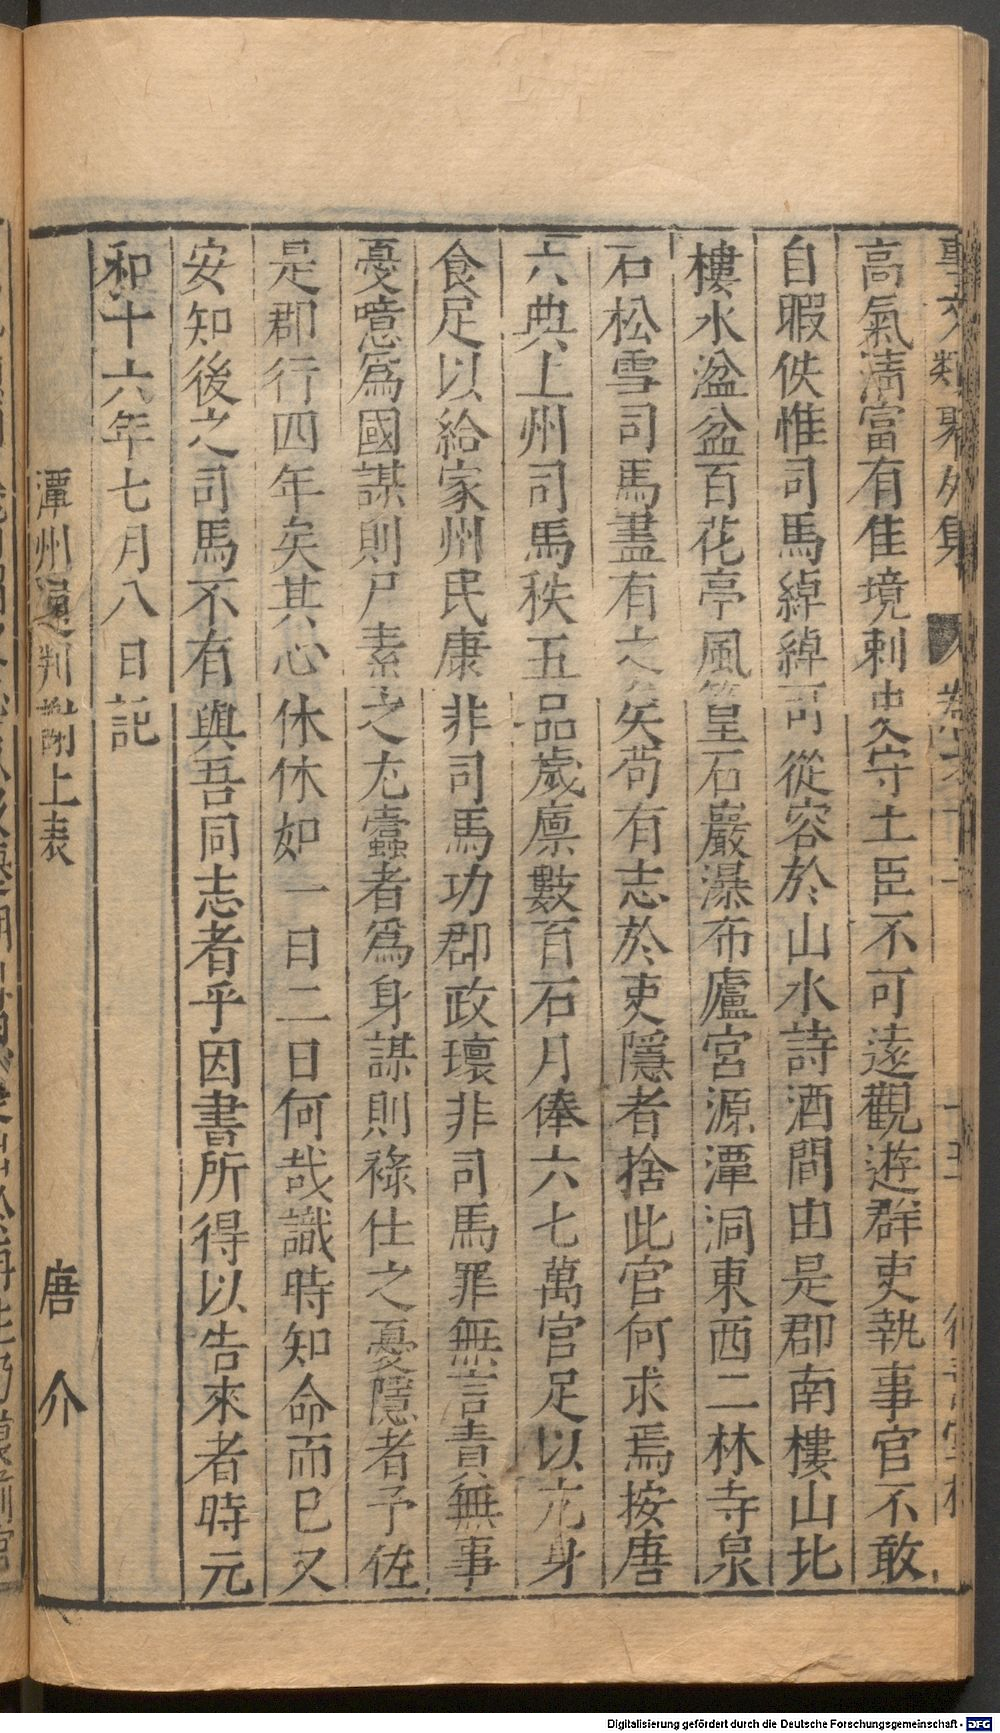 事文類聚外集 卷之十二 十五
高氣淸富有佳境刺史守土臣不可遠觀遊群吏執事官不敢
自暇佚惟司馬綽綽可從容於山水詩酒間由是郡南樓山北
樓水湓盆百花亭風篁石巖瀑布廬宮源潭洞東西二林寺泉
石松雪司馬盡有之矣茍有志於吏隱者捨此官何求焉按唐
六典上州司馬秩五品歲廩數百石月俸六七萬官足以庇身
食足以給家州民康非司馬功郡政壞非司馬罪無言責無事
憂噫爲國謀則尸素之尤蠹者爲身謀則祿仕之憂隱者予佐
是郡行四年矣其心休休如一日二日何哉識時知命而已又
安知後之司馬不有與吾同志者乎因書所得以告來者時元
和十六年七月八日記
潭州通判謝上表 唐介
Digitalisierung gefördert durch die Deutsche Forschungsgemeinschaft - DFG